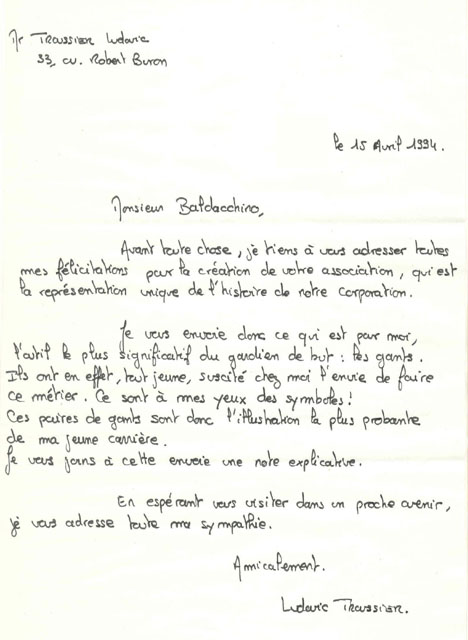 Mr Troussier Ludovic
33, av. Robert Buron
le 15 Avril 1994.
Monsieur Baldacchino,
Avant toute chose, je tiens à vous adresser toutes
mes félicitations pour la création de votre association, qui est
la représentation unique de l'histoire de notre corporation.
Je vous envoie donc ce qui est pour moi,
l'outil le plus significatif du gardien de but : les gants.
Ils ont en effet, tout jeune, suscité chez moi l'envie de faire
ce métier. Ce sont à mes yeux des symboles !
Ces paires de gants sont donc l'illustration la plus probante
de ma jeune carrière.
Je vous joins à cette envoie une note explicative.
En espérant vous visiter dans un proche avenir,
je vous adresse toute ma sympathie.
Amicalement.
Ludovic Troussier.